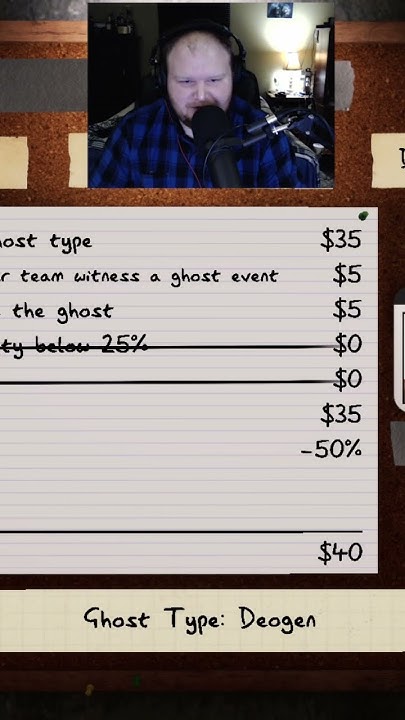 host type $35
r team witness a ghost event $5
the ghost $5
ty below 25% $0
$0
$35
-50%
$40
Ghost Type: Deogen